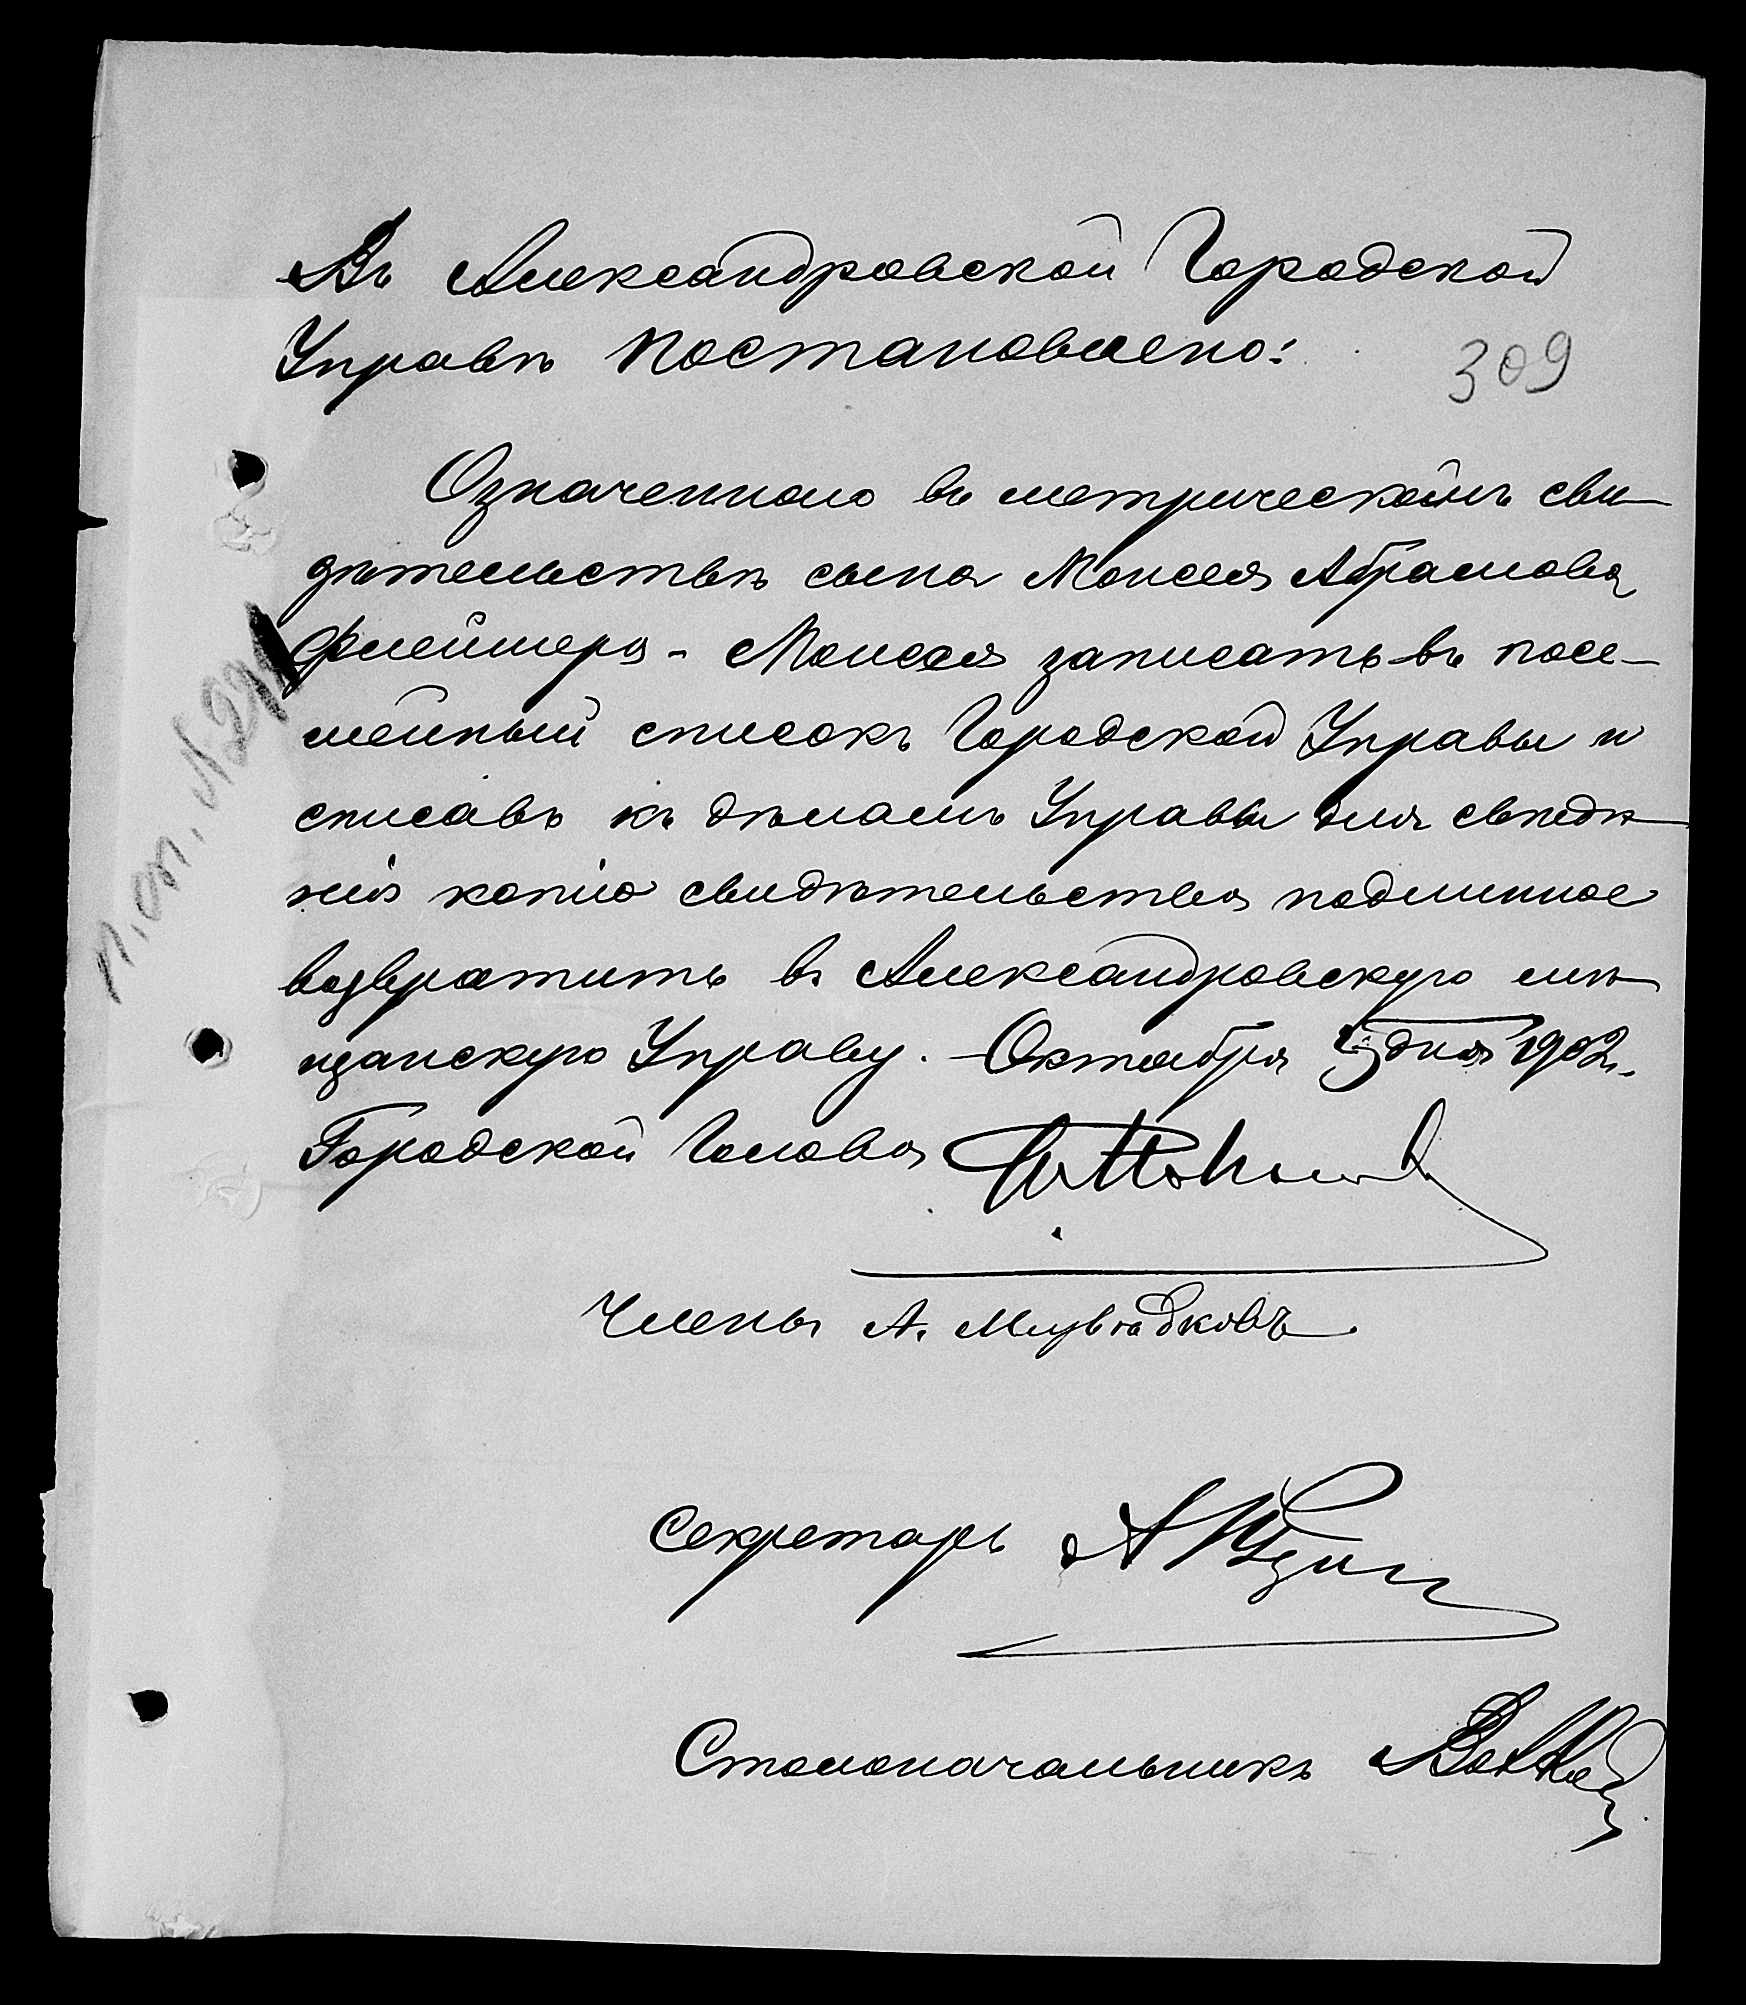 Въ Александровской Городской
Управѣ постановлено:
309
Означеннаго въ метрическомъ сви-
дѣтельствѣ сына Моисея Абрамова
Флейшера - Моисея записать въ посе-
мейный списокъ Городской Управы и
списавъ къ дѣламъ Управы для свѣдѣ-
нія копію свидѣтельства подлинное
возвратить въ Александровскую мѣ-
щанскую Управу. - Октября 5 дня 1902 г.
Городской Голова
Члены А.
Секретарь А
Столоначальникъ
п. оп. №